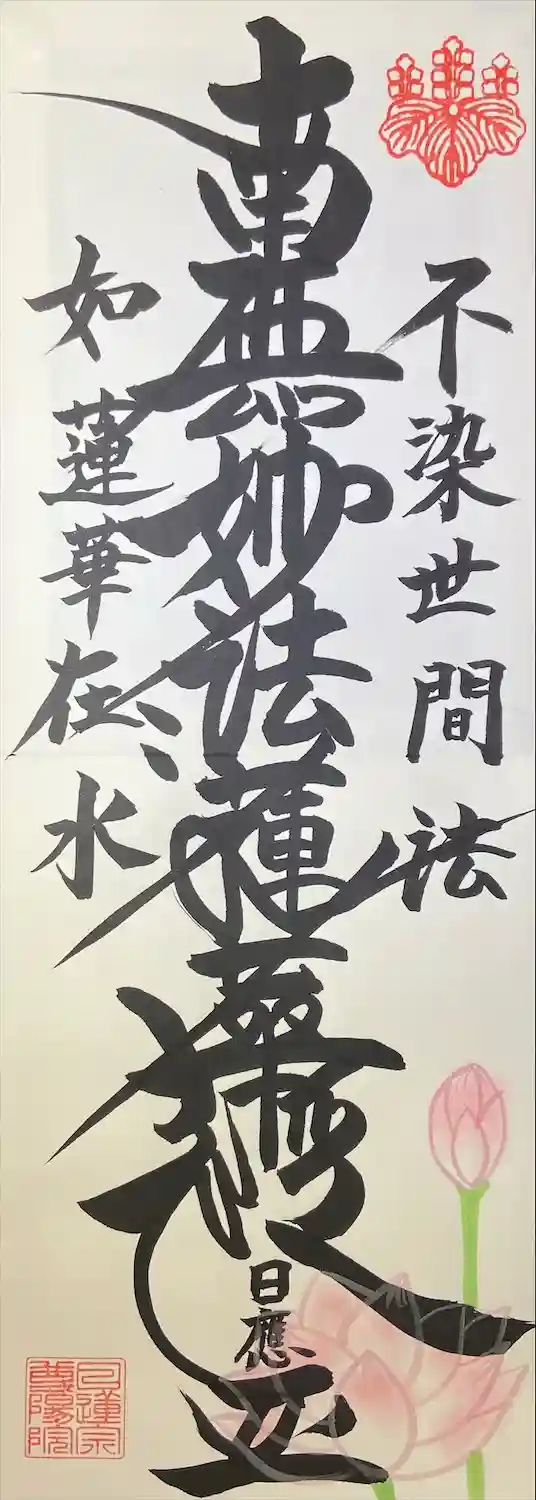 不染世間法
南無妙法蓮華経
日應
如蓮華在水
日蓮宗